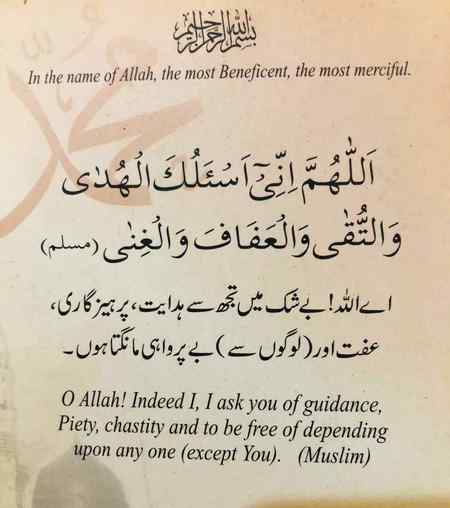 بسم الله الرحمن الرحيم
In the name of Allah, the most Beneficent, the most merciful.
اَللّٰهُمَّ اِنِّیْٓ اَسْئَلُكَ الْهُدٰى
وَالتُّقٰى وَالْعَفَافَ وَالْغِنٰى (مسلم)
اے اللہ! بے شک میں تجھ سے ہدایت، پرہیزگاری،
عفت اور (لوگوں سے) بے پرواہی مانگتا ہوں۔
O Allah! Indeed I, I ask you of guidance,
Piety, chastity and to be free of depending
upon any one (except You). (Muslim)
محمد